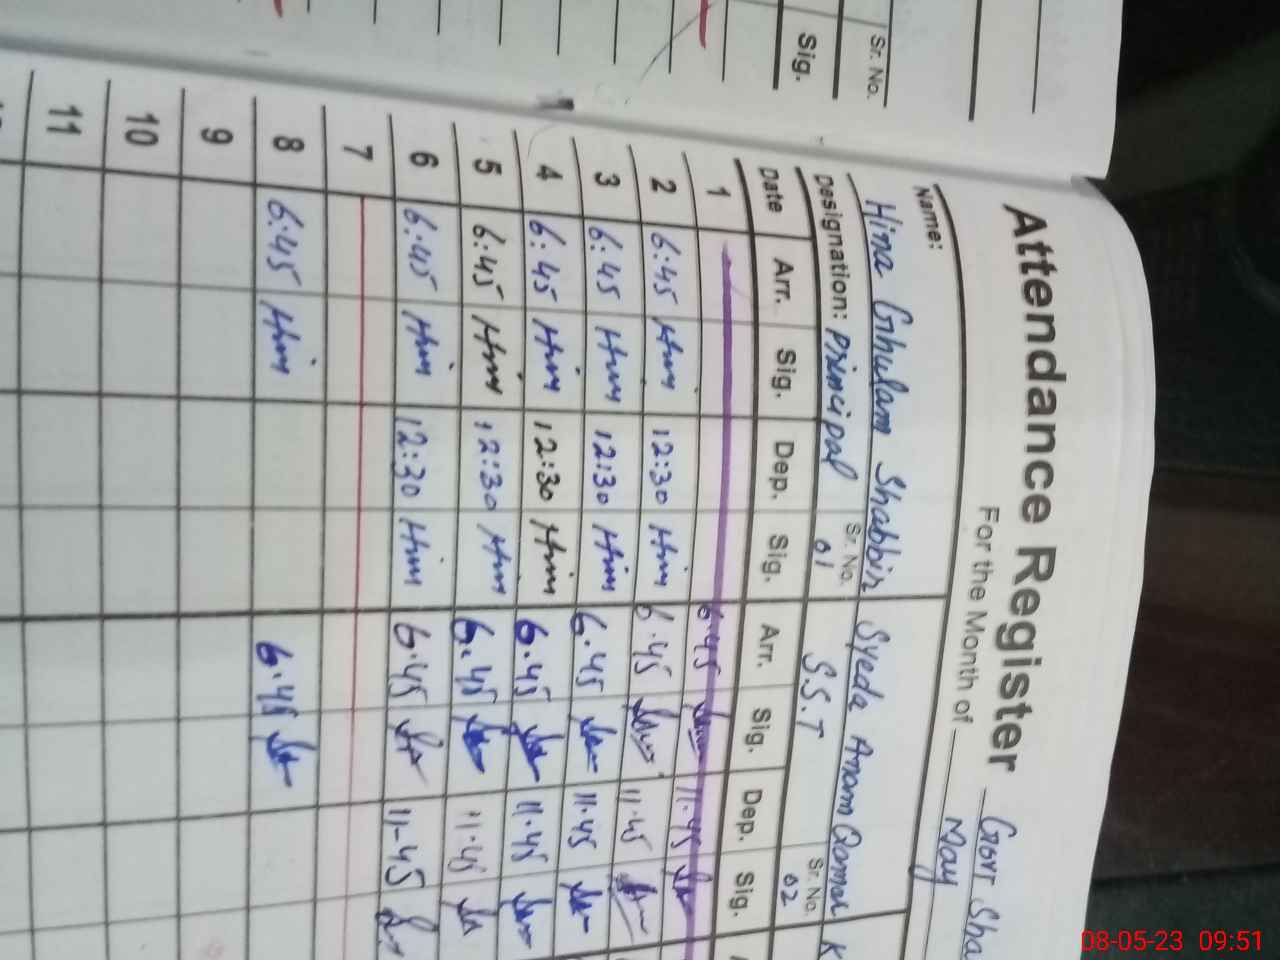 Sr. No.
Sig.
Attendance Register Govt Sha
For the Month of May
Name:
Hina Ghulam Shabbir Syeda Anam Qamar K
Designation: Principal Sr. No. 01 S.S.T Sr. No. 02
Date Arr. Sig. Dep. Sig. Arr. Sig. Dep. Sig.
1 6.45 11.45
2 6:45 12:30 6.45 11.45
3 6:45 12:30 6.45 11.45
4 6:45 12:30 6.45 11.45
5 6:45 12:30 6.45 11.45
6 6:45 12:30 6.45 11-45
7
8 6:45 6.45
9
10
11
08-05-23 09:51